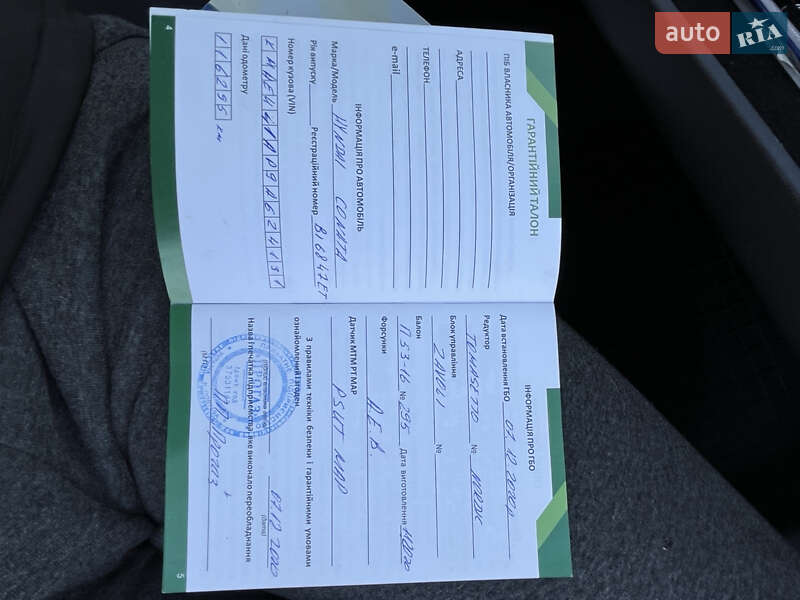 auto RIA
.com
ГАРАНТІЙНИЙ ТАЛОН
ПІБ ВЛАСНИКА АВТОМОБІЛЯ/ОРГАНІЗАЦІЯ
АДРЕСА
ТЕЛЕФОН
e-mail
ІНФОРМАЦІЯ ПРО АВТОМОБІЛЬ
Марка/Модель HYNDAI СОНАТА
Рік випуску Реєстраційний номер ВІ6847ЕТ
Номер кузова (VIN)
Дані одометру
км
4
ІНФОРМАЦІЯ ПРО ГБО
Дата встановлення ГБО 07.12.2020р
Редуктор
TOMASETTO №
Блок управління
ZAVOLI №
Балон
П53-16 № 295 Дата виготовлення
Форсунки
A.E.B.
Датчик МТМ РТ МАР
PS UT MAP
З правилами техніки безпеки і гарантійними умовами
ознайомлений і згоден
07.12.2020
(дата)
Назва і печатка підприємства, яке виконало переобладнання
5